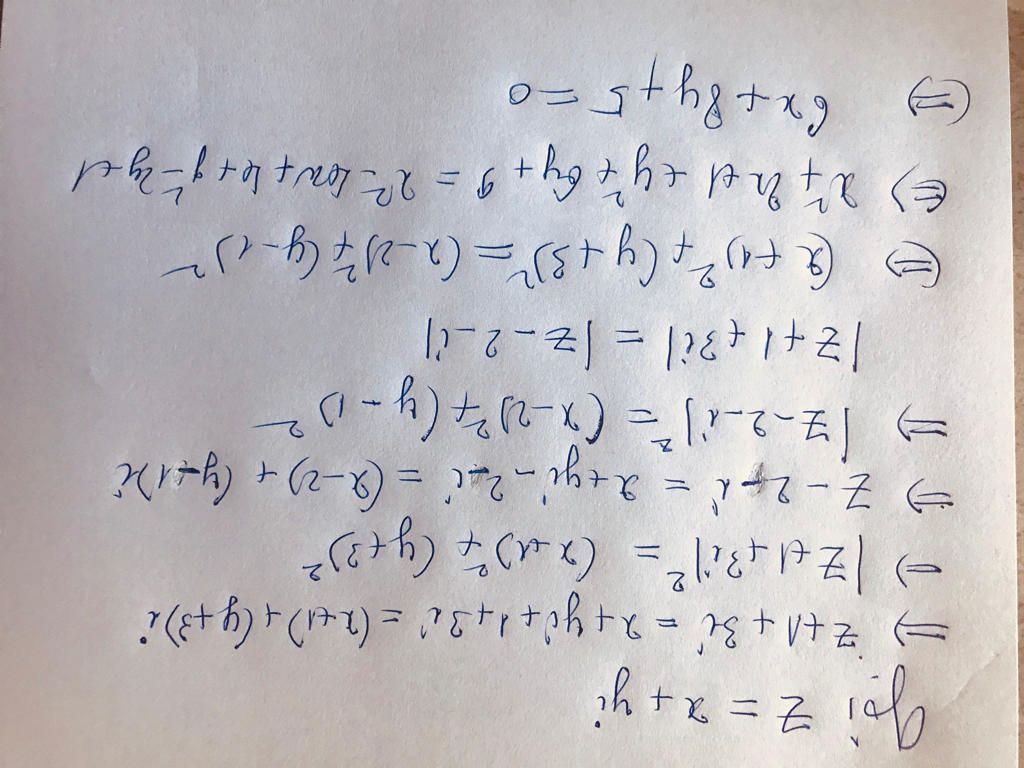 Gọi z = x + yi
=> z+1+3i = x+yi+1+3i = (x+1)+(y+3)i
=> |z+1+3i|² = (x+1)²+(y+3)²
=> z-2-i = x+yi-2-i = (x-2)+(y-1)i
=> |z-2-i|² = (x-2)²+(y-1)²
|z+1+3i| = |z-2-i|
<=> (x+1)²+(y+3)² = (x-2)²+(y-1)²
<=> x²+2x+1+y²+6y+9 = x²-4x+4+y²-2y+1
<=> 6x+8y+5=0